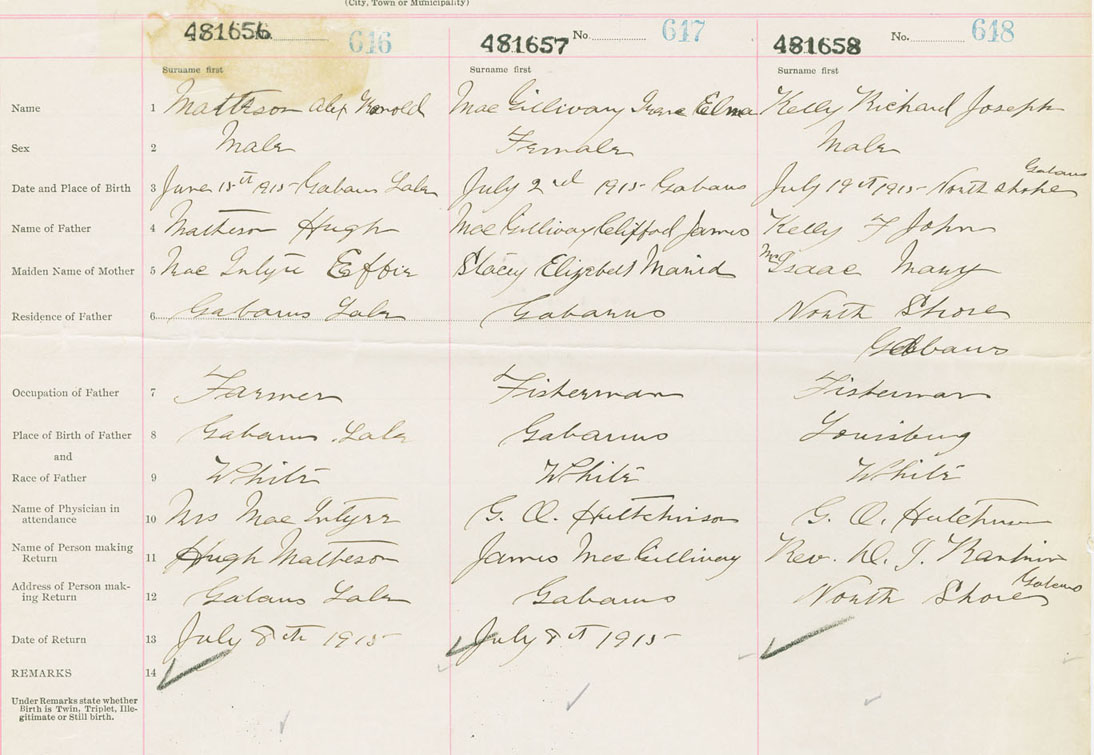 (City, Town or Municipality)
481656 616 481657 No. 617 481658 No. 618
Surname first Surname first Surname first
Name 1 Matheson Alex Harold Mac Gillivary Irene Elma Kelly Richard Joseph
Sex 2 Male Female Male
Gabarus
Date and Place of Birth 3 June 15th 1915 Gabarus Lake July 2nd 1915 Gabarus July 19th 1915 North Shore
Name of Father 4 Matheson Hugh Mac Gillivary Clifford James Kelly F John
Maiden Name of Mother 5 Mac Intyre Effie Stacey Elizebeth Mc Isaac Mary
Residence of Father 6 Gabarus Lake Gabarus North Shore
Gabarus
Occupation of Father 7 Farmer Fisherman Fisherman
Place of Birth of Father 8 Gabarus Lake Gabarus Louisburg
and
Race of Father 9 White White White
Name of Physician in
attendance 10 Mrs Mac Intyre G. O. Hutchinson G. O.
Name of Person making
Return 11 Hugh Matheson James Mac Gillivary Rev.
Address of Person mak-
ing Return 12 Gabarus Lake Gabarus North Shore Gabarus
Date of Return 13 July 8th 1915 July 8th 1915
REMARKS 14
Under Remarks state whether
Birth is Twin, Triplet, Ille-
gitimate or Still birth.